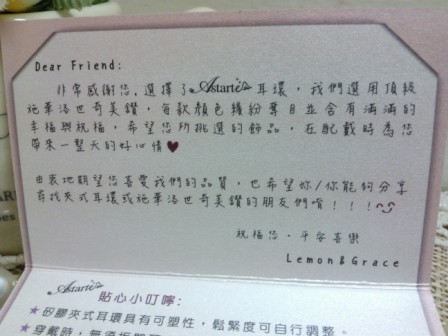 Dear Friend:
非常感謝您,選擇了Astarté耳環,我們選用頂級
施華洛世奇美鑽,每款顏色繽紛奪目並含有滿滿的
幸福與祝福,希望您所挑選的飾品,在配戴時為您
帶來一整天的好心情♥
由衷地期望您喜愛我們的品質,也希望妳/你能夠分享
尋找夾式耳環或施華洛世奇美鑽的朋友們唷!!!^^
祝福您‧平安喜樂
Lemon&Grace
Astarté
貼心小叮嚀:
★矽膠夾式耳環具有可塑性,鬆緊度可自行調整。
★穿戴時,無須